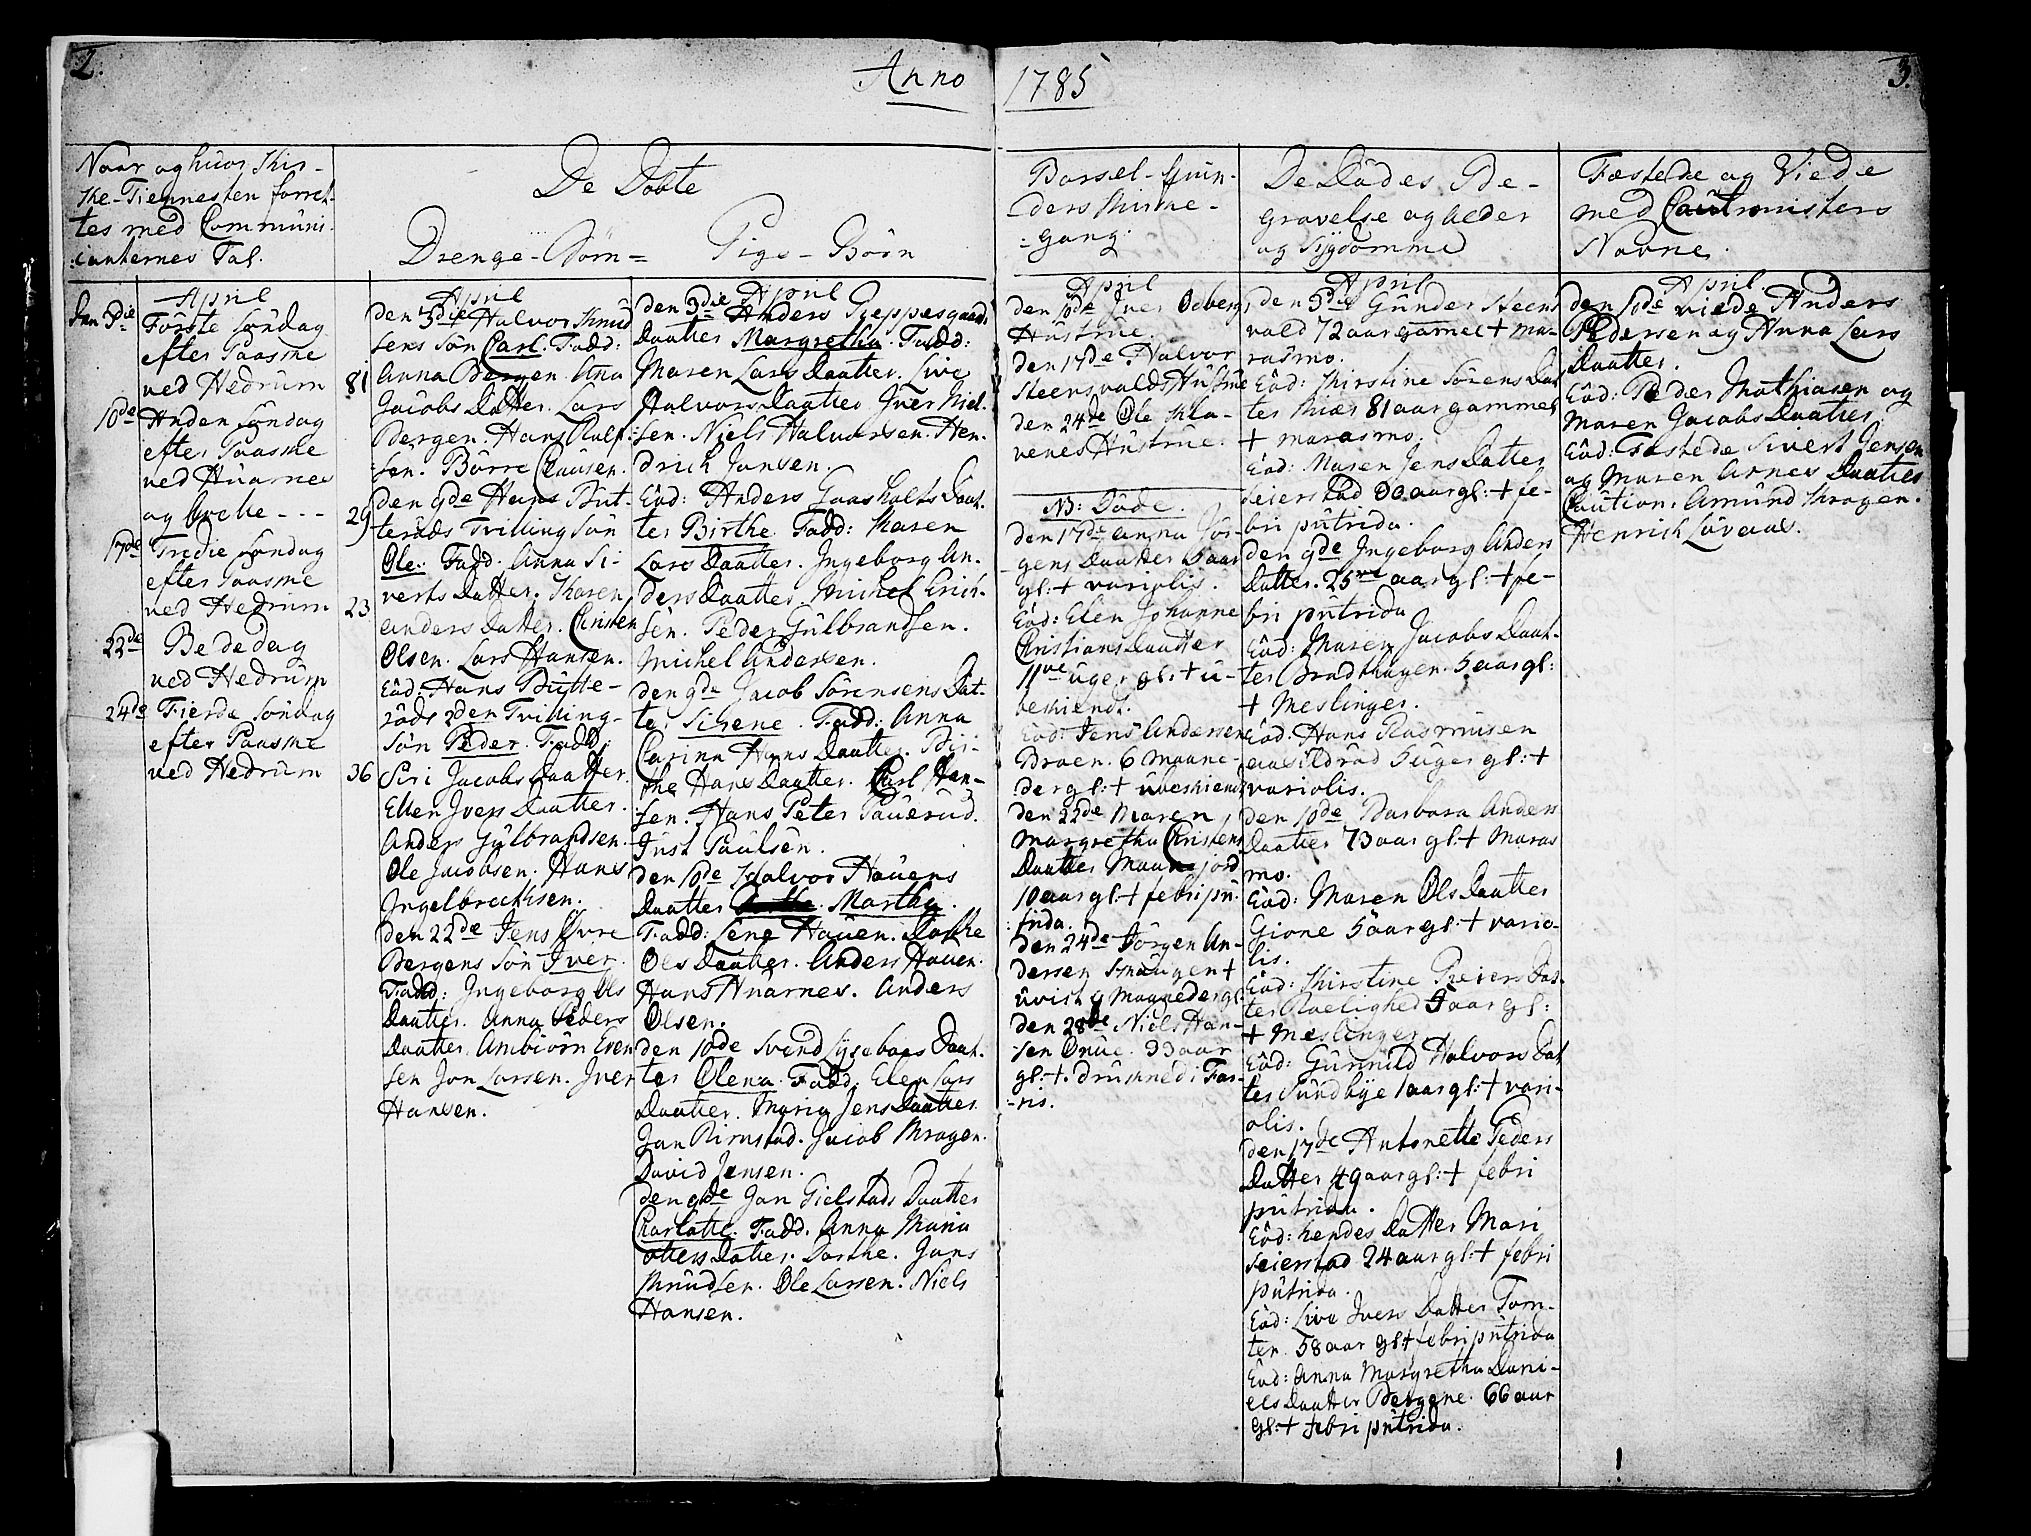 2.
Anno
1785
3.
Naar og hvor Kir-
ke-Tienesten forret-
tes med Communi-
:cianternes Tal.
De Døbte
Drenge-Børn=
Pige-Børn
Barsel-Qvin-
ders Kirke-
:gang.
De Dødes Be-
gravelse og Alder
og Sygdomme
Fæstede og Viede
med Cautionisters
Navne.
Den 3die
April
Første Søndag
efter Paaske
ved Hedrum 81
10de Anden Søndag
efter Paaske
ved Hvarnes
og - - - 29
17de Tredie Søndag
efter Paaske
ved Hedrum 23
22de Bededag
ved Hedrum
24de Fierde Søndag
efter Paaske
ved Hedrum 36
April
den 3die Halvor Knud
sens Søn Carl. Fadd:
Anna Bergen. Ana
Jacobs Datter. Lars
Bergen. Hans Rolf-
:sen. Børre Clausen.
den 9de Hans But-
terøds Tvilling Søn
Ole. Fadd. Anna Si-
verts Datter. Karen
Anders Datter. Christen
Olsen. Lars Hansen.
Eod: Hans Butte-
røds 2den Tvilling-
Søn Peder. Fadd:
Siri Jacobs Daatter.
Ellen Ivers Daatter.
Anders Gulbrandsen.
Ole Jacobsen. Hans
Ingelbrechtsen.
den 22de Jens Øvre
Bergens Søn Iver.
Fadd: Ingeborg Ols
Daatter. Anna Peders
Daatter. Ambiørn Even
sen Jon Larsen. Iver
Hansen.
April
den 3die Anders Gieppesgaards
Daatter Margretha. Fadd:
Maren Lars Daatter. Live
Halvors Daatter Iver Niel-
sen. Niels Halvorsen. Hen-
drich Jansen.
Eod: Anders Gaasholts Daat-
ter Birthe. Fadd: Karen
Lars Daatter. Ingeborg An-
ders Daatter Michel Erich-
sen. Peder Gulbrandsen.
Michel Andersen.
den 9de Jacob Sørensens Dat-
ter Sirene. Fadd: Anna
Carina Hans Daatter. Bir-
the Hans Daatter. Carl Han-
sen. Hans Peter Pauerud.
Just Paulsen.
den 10de Halvor Hauens
Daatter Martha.
Fadd: Lene Hauen. Dorthe
Ols Daatter. Anders Hauen.
Hans Hvarnes. Anders
Olsen.
den 10de Svend Lyseboes Daat-
ter Olena. Fadd. Elen Lars
Daatter. Maria Jens Daatter
Jan Rimstad. Jacob Kragen.
David Jensen.
den 9de Jan Gielstads Daatter
Charlotte. Fadd. Anna Maria
Datter. Dorthe. Jans
Knudsen. Ole Larsen. Niels
Hansen.
April
den 10de Iver Odberg
Hustrue
den 17de Halvor
Steensvalds Hustrue
den 24de Ole Kla-
venes Hustrue.
NB: Døde.
den 17de Anna Jør-
gens Daatter 5 aar
gl: + variolis.
Eod: Elen Johanne
Christians Daatter
11ve uger gl: + u-
bekiendt.
Eod: Jens Andersen
Braen. 6 maane-
der gl: + ubekiendt
den 22de Maren
Margretha Christens
Daatter Maanejord
10 aar gl: + febri pu-
trida.
den 24de Jørgen An-
dersen Skaugen +
uvist 9 Maaneder gl:
den 28de Niels Han-
sen Brue. 33 aar
gl: +. druknede i Far-
-ris.
April
den 3die Gunder Steens
vald 72 aar gamel + ma-
rasmo.
Eod: Kirstine Sørens Dat
ter Kiær 81 aar gammel
+ marasmo.
Eod: Maren Jens Datter
Seierstad 60 aar gl: + fe-
bri putrida.
den 9de Ingeborg Anders
Datter. 25ve aar gl: + fe-
bri putrida
Eod: Maren Jacobs Daat-
ter Bradthagen. 5 aar gl:
+ Meslinger.
Eod: Hans Rasmusen
5 uger gl: +
variolis.
den 10de Barbara Anders
Daatter 73 aar gl: + Maras
mo.
Eod: Maren Ols Daatter
Gione 5 aar gl: + vario-
lis.
Eod: Kirstine Reiers Dat-
ter Roelighed 5 aar gl:
+ Meslinger
Eod: Gunnild Halvors Dat
ter Sundbye 1 aar gl: + vari-
olis.
den 17de Antonette Peders
Datter 49 aar gl: + febri
putrida.
Eod: hendes Datter Mari
Seierstad 24 aar gl: + febri
putrida.
Eod: Live Ivers Datter Tom-
ten. 58 aar gl + febri putrida
Eod: Anna Margretha Dani-
els Daatter Bergene. 66 aar
gl: + febri putrida.
April
den 10de viede Anders
Pedersen og Anna Lars
Daatter.
Eod: Peder Mathiasen og
Maren Jacobs Daatter
Eod: Fæstede Sivert Jensen
og Maren Arnes Daatter
Caution: Amund Kragen.
Henrich Løveaas.